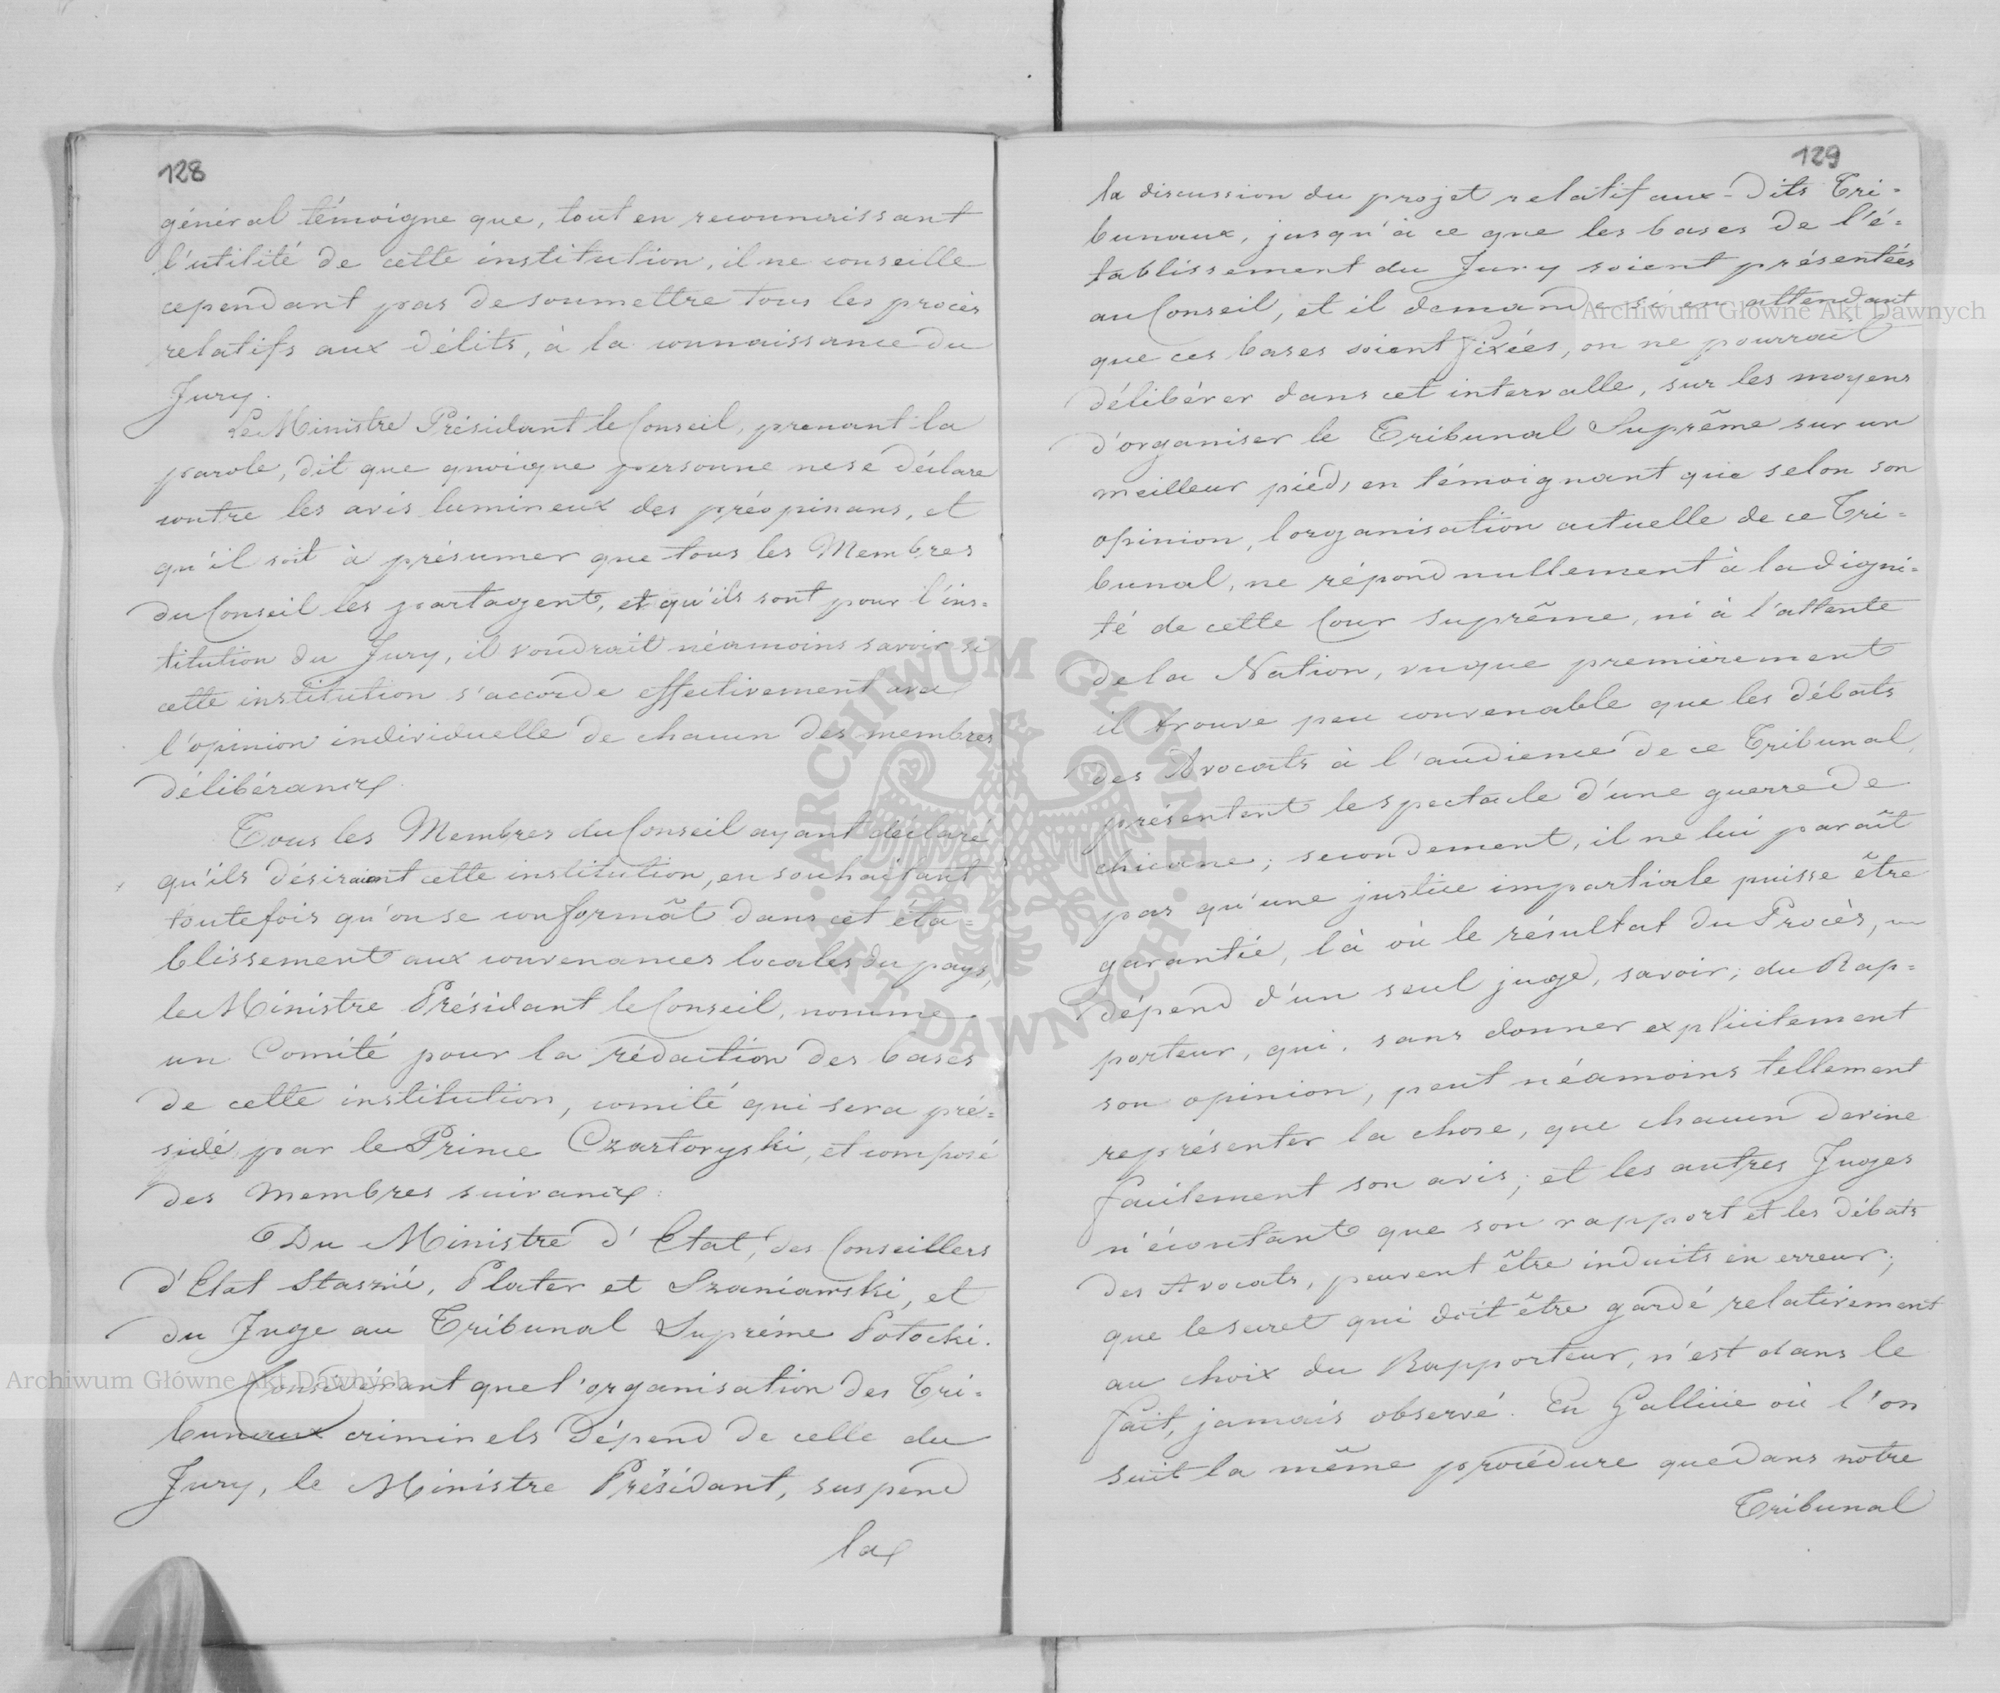 128
général témoigne que, tout en reconnaissant
l'utilité de cette institution, il ne conseille
cependant pas de soumettre tous les procès
relatifs aux délits, à la connaissance du
Jury.
Le Ministre Présidant le Conseil, prenant la
parole, dit que quoique personne ne se déclare
contre les avis lumineux des préopinans, et
qu'il soit à présumer que tous les Membres
du Conseil les partagent, et qu'ils sont pour l'ins-
titution du Jury, il voudrait néamoins savoir si
cette institution s'accorde effectivement avec
l'opinion individuelle de chacun des membres
délibérans.
Tous les Membres du Conseil ayant déclaré
qu'ils désiraient cette institution, en souhaitant
toutefois qu'on se conformât dans cet éta=
blissement aux convenances locales du pays,
le Ministre Présidant le Conseil, nomme
un Comité pour la rédaction des bases
de cette institution, comité qui sera pré=
sidé par le Prince Czartoryski, et composé
des membres suivans:
Du Ministre d'Etat, des Conseillers
d'Etat Staszic, Plater et Szaniawski, et
du Juge au Tribunal Suprême Potocki.
Considérant que l'organisation des Tri-
bunaux criminels dépend de celle du
Jury, le Ministre Présidant, suspend
la
129
la discussion du projet relatif aux-dits Tri=
bunaux, jusqu'à ce que les bases de l'é=
tablissement du Jury soient présentées
au Conseil, et il demande si en attendant
que ces bases soient fixées, on ne pourrait
délibérer dans cet intervalle, sur les moyens
d'organiser le Tribunal Suprême sur un
meilleur pied, en témoignant que selon son
opinion, l'organisation actuelle de ce Tri=
bunal, ne répond nullement à la digni=
té de cette Cour suprême, ni à l'attente
de la Nation, vu que premièrement
il trouve peu convenable que les débats
des Avocats à l'audience de ce Tribunal,
présentent le spectacle d'une guerre de
chicane; secondement, il ne lui paraît
pas qu'une justice impartiale puisse être
garantie, là où le résultat du Procès,
dépend d'un seul juge, savoir; du Rap=
porteur, qui, sans donner explicitement
son opinion, peut néamoins tellement
représenter la chose, que chacun devine
facilement son avis; et les autres Juges
n'écoutant que son rapport et les débats
des Avocats, peuvent être induits en erreur;
que le secret qui doit être gardé relativement
au choix du Rapporteur, n'est dans le
fait, jamais observé. En Gallicie où l'on
suit la même procédure que dans notre
Tribunal
Archiwum Główne Akt Dawnych
Archiwum Główne Akt Dawnych
ARCHIWUM GŁÓWNE AKT DAWNYCH